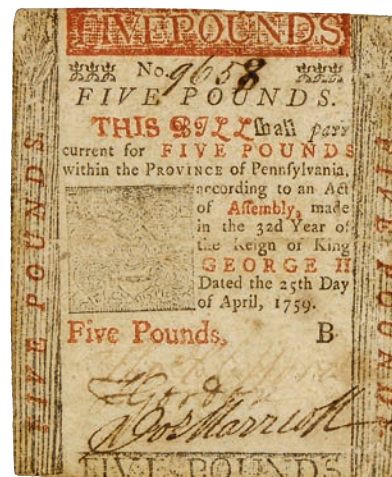 FIVE POUNDS
No. 9658
FIVE POUNDS.
THIS BILL shall pass
current for FIVE POUNDS
within the PROVINCE of Pennsylvania,
according to an Act
of Assembly, made
in the 32d Year of
the Reign of King
GEORGE II
Dated the 25th Day
of April, 1759.
Five Pounds, B
Gordon
Jos Marriott
FIVE POUNDS
FIVE POUNDS
FIVE POUNDS